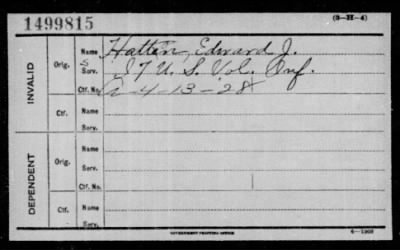 1499815
(3-H-4)
INVALID
Orig. Name Hatten, Edward J.
S Serv. I 7 U. S. Vol. Inf.
Ctf. No. A-4-13-28
Ctf. Name
Serv.
DEPENDENT
Orig. Name
Serv.
Ctf. No.
Ctf. Name
Serv.
GOVERNMENT PRINTING OFFICE